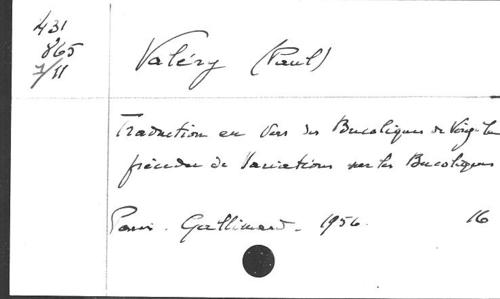 431
865
7/11
Valéry (Paul)
Traduction en vers des Bucoliques de Virgile
précédée de Variations sur les Bucoliques
Paris. Gallimard. 1956. 16